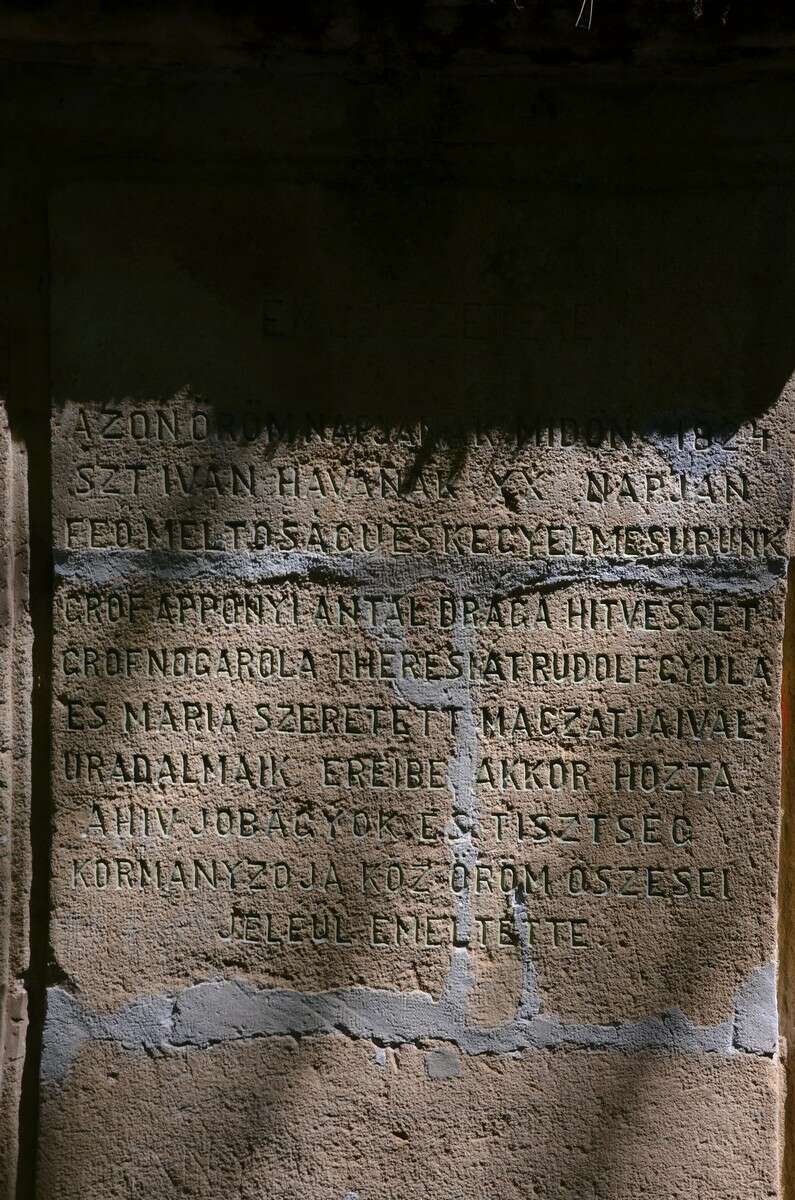 AZON ÖRÖM NAPJÁNAK MIDŐN 1824
SZT IVÁN HAVÁNAK XX NAPJÁN
FEŐ MÉLTÓSÁGU ÉS KEGYELMES URUNK
GRÓF APPONYI ANTAL DRÁGA HITVESSÉT
GRÓF NOGAROLA THERESIÁT RUDOLF GYULA
ÉS MARIA SZERETETT MAGZATJAIVAL
URADALMAIK EREIBE AKKOR HOZTA
A HIV JOBÁGYOK ÉS TISZTSÉG
KORMÁNYZÓJA KÖZ ÖRÖM ÖSZESEI
JELÉÜL EMELTETTE